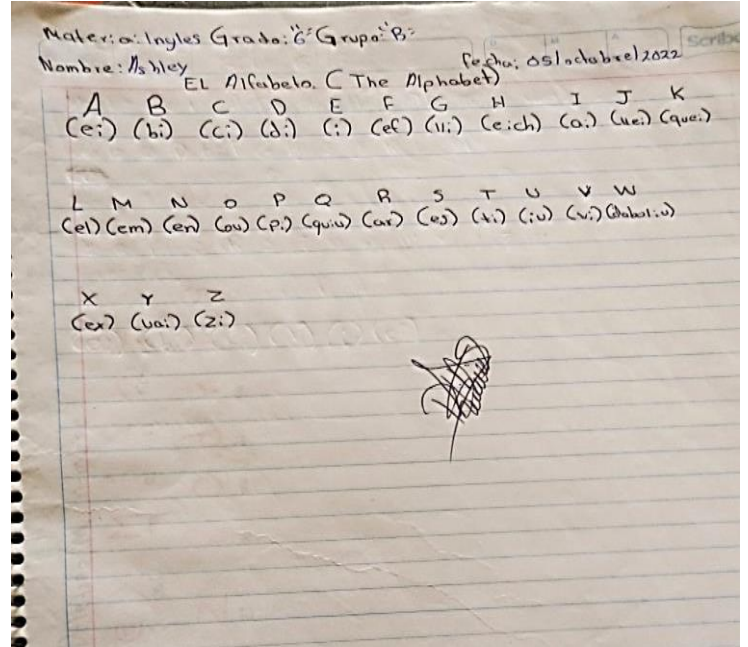 Materia: Inyles Grado: "6" Grupo: "B"
Nombre: Ashley fecha: 05/octubre/2022
EL Alfabeto. ( The Alphabet)
A B C D E F G H I J K
(ei) (bi) (ci) (di) (i) (ef) (lli) (eich) (ai) (llei) (quei)
L M N O P Q R S T U V W
(el) (em) (en) (ou) (pi) (quiu) (ar) (es) (ti) (iu) (vi) (daboliu)
X Y Z
(ex) (uai) (zi)